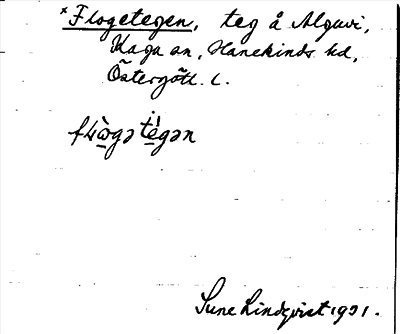 *Flogetegen, teg å Alguvi,
Kaga sn, Hanekinds hd,
Östergötl. l.
flωgə tégən
Sune Lindqvist 1921.